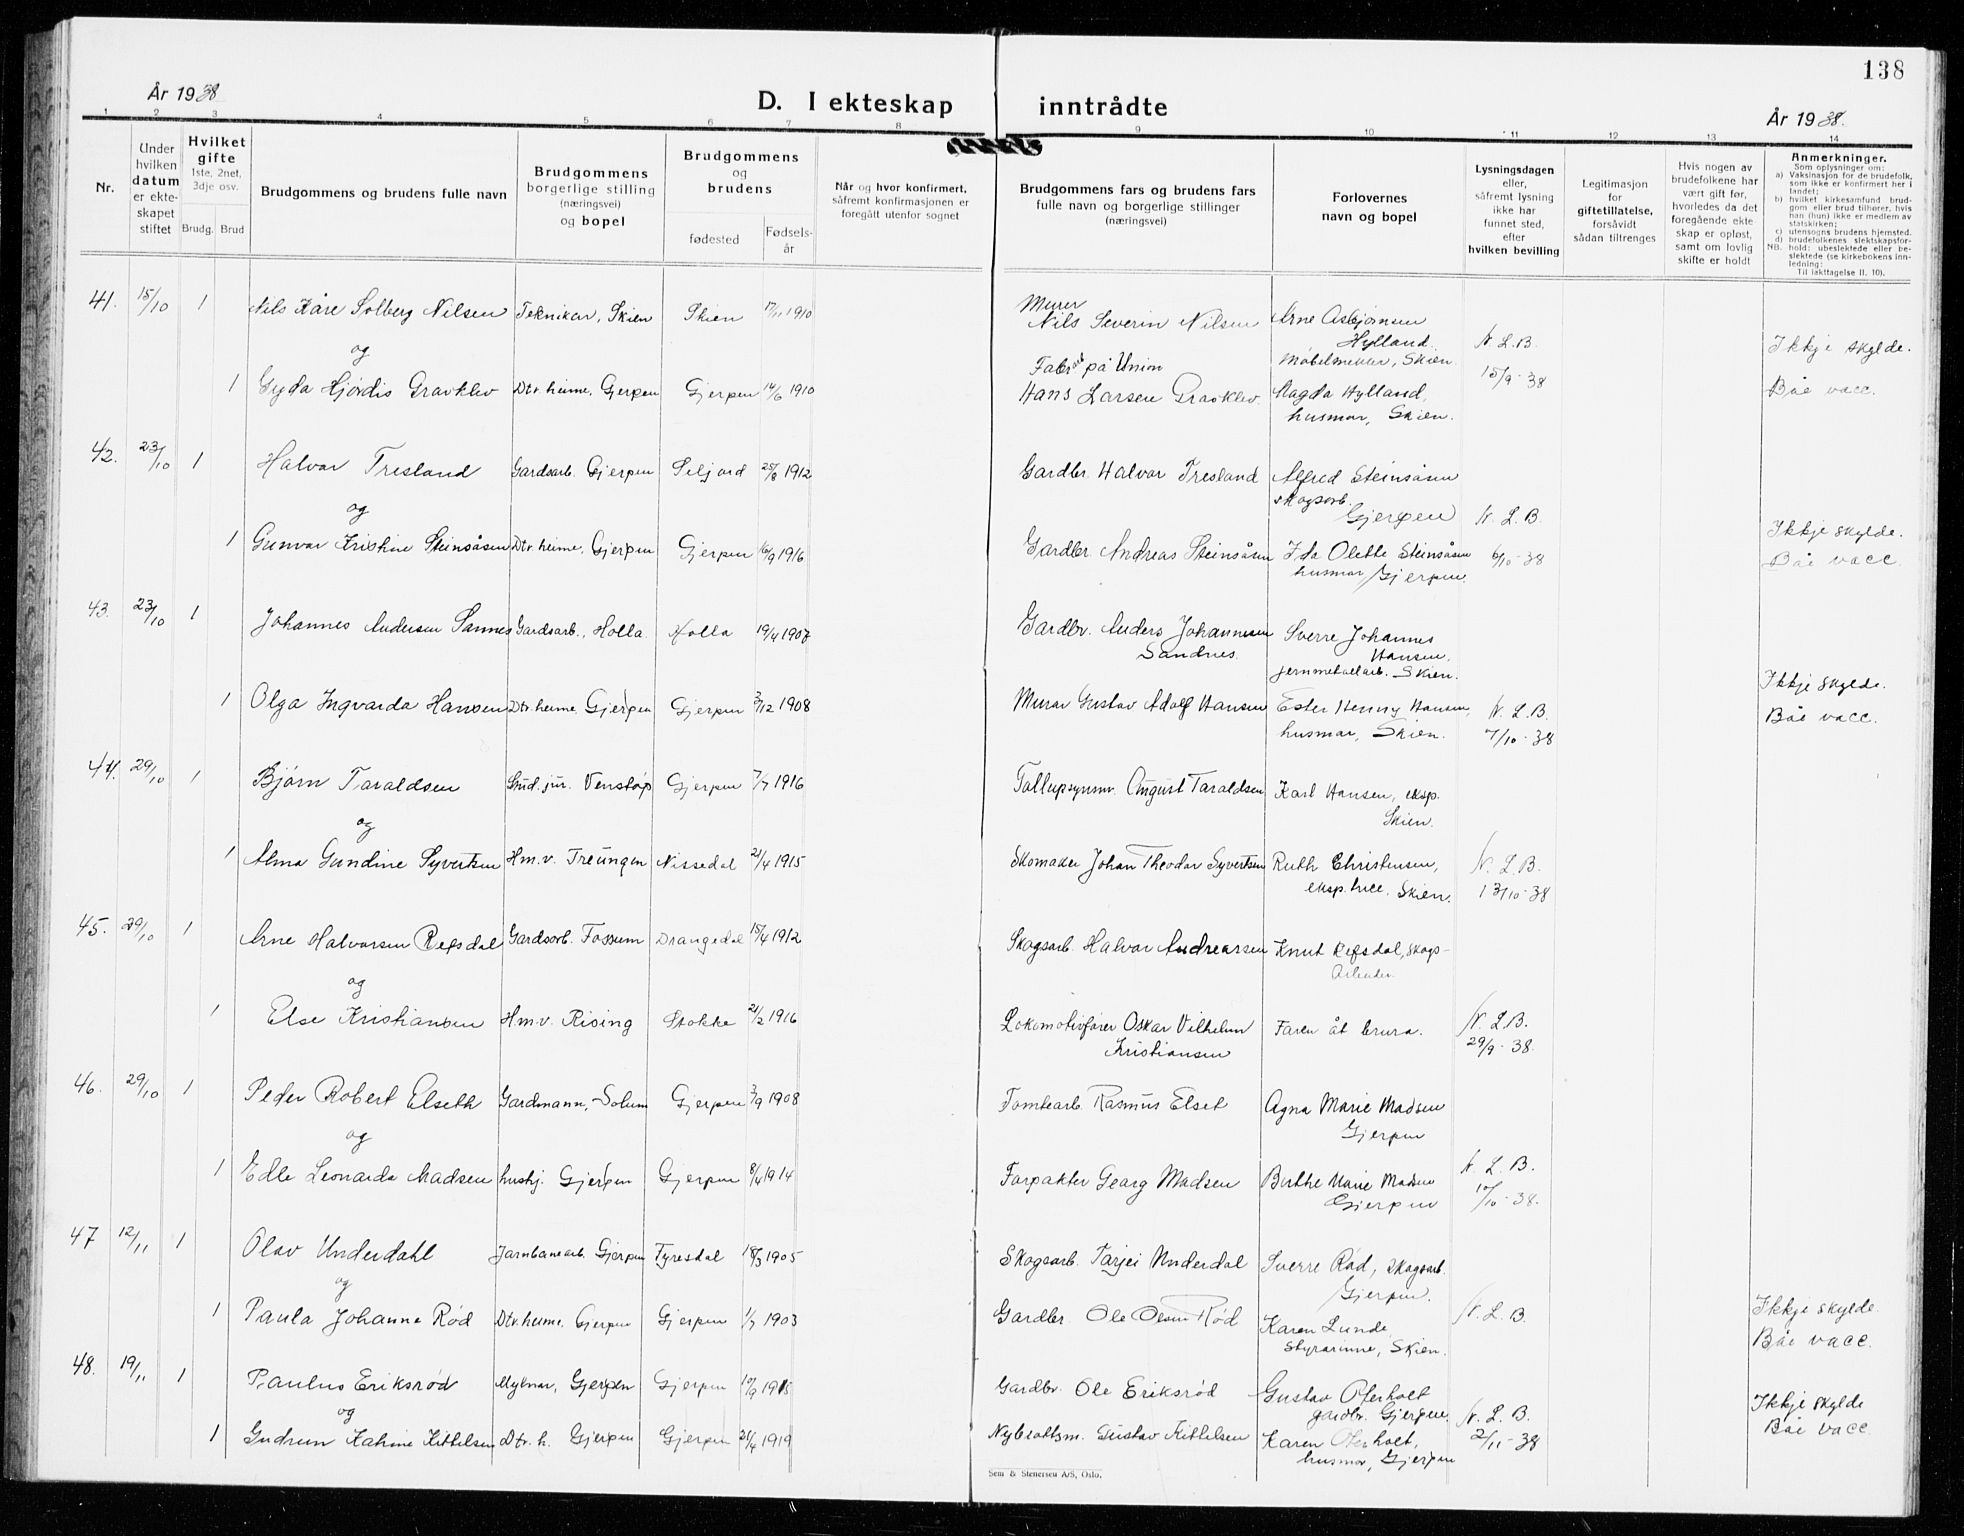 138
År 1938
D. I ekteskap inntrådte
År 1938.
1 2 3 4 5 6 7 8 9 10 11 12 13 14
Nr.
Under hvilken datum er ekte-skapet stiftet
Hvilket gifte 1ste, 2net, 3dje osv.
Brudg. Brud
Brudgommens og brudens fulle navn
Brudgommens borgerlige stilling (næringsvei) og bopel
Brudgommens og brudens
fødested
Fødsels-år
Når og hvor konfirmert, såfremt konfirmasjonen er foregått utenfor sognet
Brudgommens fars og brudens fars fulle navn og borgerlige stillinger (næringsvei)
Forlovernes navn og bopel
Lysningsdagen eller, såfremt lysning ikke har funnet sted, efter hvilken bevilling
Legitimasjon for giftetillatelse, forsåvidt sådan tiltrenges
Hvis nogen av brudefolkene har vært gift før, hvorledes da det foregående ekte skap er opløst, samt om lovlig skifte er holdt
Anmerkninger.
Som oplysninger om:
a) Vaksinasjon for de brudefolk, som ikke er konfirmert her i landet;
b) hvilket kirkesamfund brud-gom eller brud tilhører, hvis han (hun) ikke er medlem av statskirken;
c) utensogns brudens hjemsted.
d) brudefolkenes slektskapsfor-hold: ubeslektede eller be-slektede (se kirkebokens inn-ledning:
NB.
Til iakttagelse II. 10).
41. 15/10 1 Nils Kåre Solberg Nilsen Teknikar, Skien Skien 17/11 1910 Murer Nils Severin Nilsen Arne Asbjørnsen Hylland møbelmekar, Skien.
og
1 Gyda Hjørdis Gravklev Dtr. heime, Gjerpen Gjerpen 14/6 1910 Fabr.arb på Union Hans Larsen Gravklev Magda Hylland, husmor, Skien. N. L. B. 15/9 - 38 Ikkje skylde. Båe vacc.
42. 23/10 1 Halvor Tresland Gardsarb. Gjerpen Seljord 25/8 1912 Gardbr. Halvor Tresland Alfred Steinsåsen skogsarb. Gjerpen
og
1 Gunvor Kristine Steinsåsen Dtr. heime, Gjerpen Gjerpen 16/9 1916 Gardbr. Andreas Steinsåsen Ida Olette Steinsåsen husmor, Gjerpen. N. L. B. 6/10 - 38 Ikkje skylde. Båe vacc.
43. 23/10 1 Johannes Andersen Sannes Gardsarb., Holla. Holla 19/4 1907 Gardbr. Anders Johannesen Sandnes. Sverre Johannes Hansen, jernmetallarb. Skien.
1 Olga Ingvarda Hansen Dtr. heime. Gjerpen Gjerpen 3/12 1908 Murar Gustav Adolf Hansen Ester Henny Hansen, husmor, Skien. N. L. B. 7/10 - 38 Ikkje skylde. Båe vacc.
44. 29/10 1 Bjørn Taraldsen Stud. jur. Venstøp Gjerpen 7/7 1916 Tollupsynsm. August Taraldsen Karl Hansen, eksp. Skien.
og
1 Alma Gundine Syvertsen Hm. v. Treungen Nissedal 21/4 1915 Skomaker Johan Theodor Syvertsen Ruth Christensen, eksp. trice. Skien. N. L. B. 13/10 - 38
45. 29/10 1 Arne Halvorsen Refsdal Gardsarb. Fossum Drangedal 15/4 1912 Skogsarb. Halvor Andreassen Knut Refsdal, skogs-arbeider
og
1 Else Kristiansen Hm. v. Rising Stokke 21/2 1916 Lokomotivfører Oskar Vilhelm Kristiansen Faren åt brura. N. L. B. 29/9 - 38.
46. 29/10 1 Peder Robert Elseth Gardmann, Solum Gjerpen 3/9 1908 Tomtearb. Rasmus Elset Agna Marie Madsen Gjerpen
og
1 Edle Leonarda Madsen hushj. Gjerpen Gjerpen 8/4 1914 Forpakter Georg Madsen Birthe Marie Madsen Gjerpen N. L. B. 10/10 - 38.
47 12/11 1 Olav Underdahl Jarnbanearb. Gjerpen Fyresdal 18/3 1905 Skogsarb. Tarjei Underdal Sverre Rød, skogsarb. Gjerpen.
og
1 Paula Johanne Rød Dtr. heime. Gjerpen Gjerpen 1/7 1903 Gardbr. Ole Olsen Rød Karen Lunde styrarinne, Skien. N. L. B. Ikkje skylde. Båe vacc.
48. 19/11 1 Paulus Eriksrød Mylnar, Gjerpen Gjerpen 10/9 1915 Gardbr. Ole Eriksrød Gustav Oterholt gardbr. Gjerpen.
og
1 Gudrun Katrine Kittelsen Dtr. h. Gjerpen Gjerpen 21/4 1919 Nybrottsm. Gustav Kittelsen Karen Oterholt, husmor, Gjerpen N. L. B. 2/11 - 38 Ikkje skylde Båe vacc.
Sem & Stenersen A/S, Oslo.